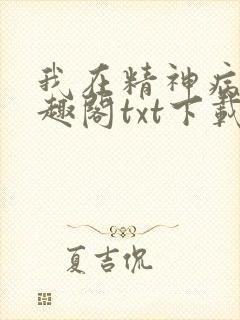 我在精神病
趣阁txt下载
夏吉侃